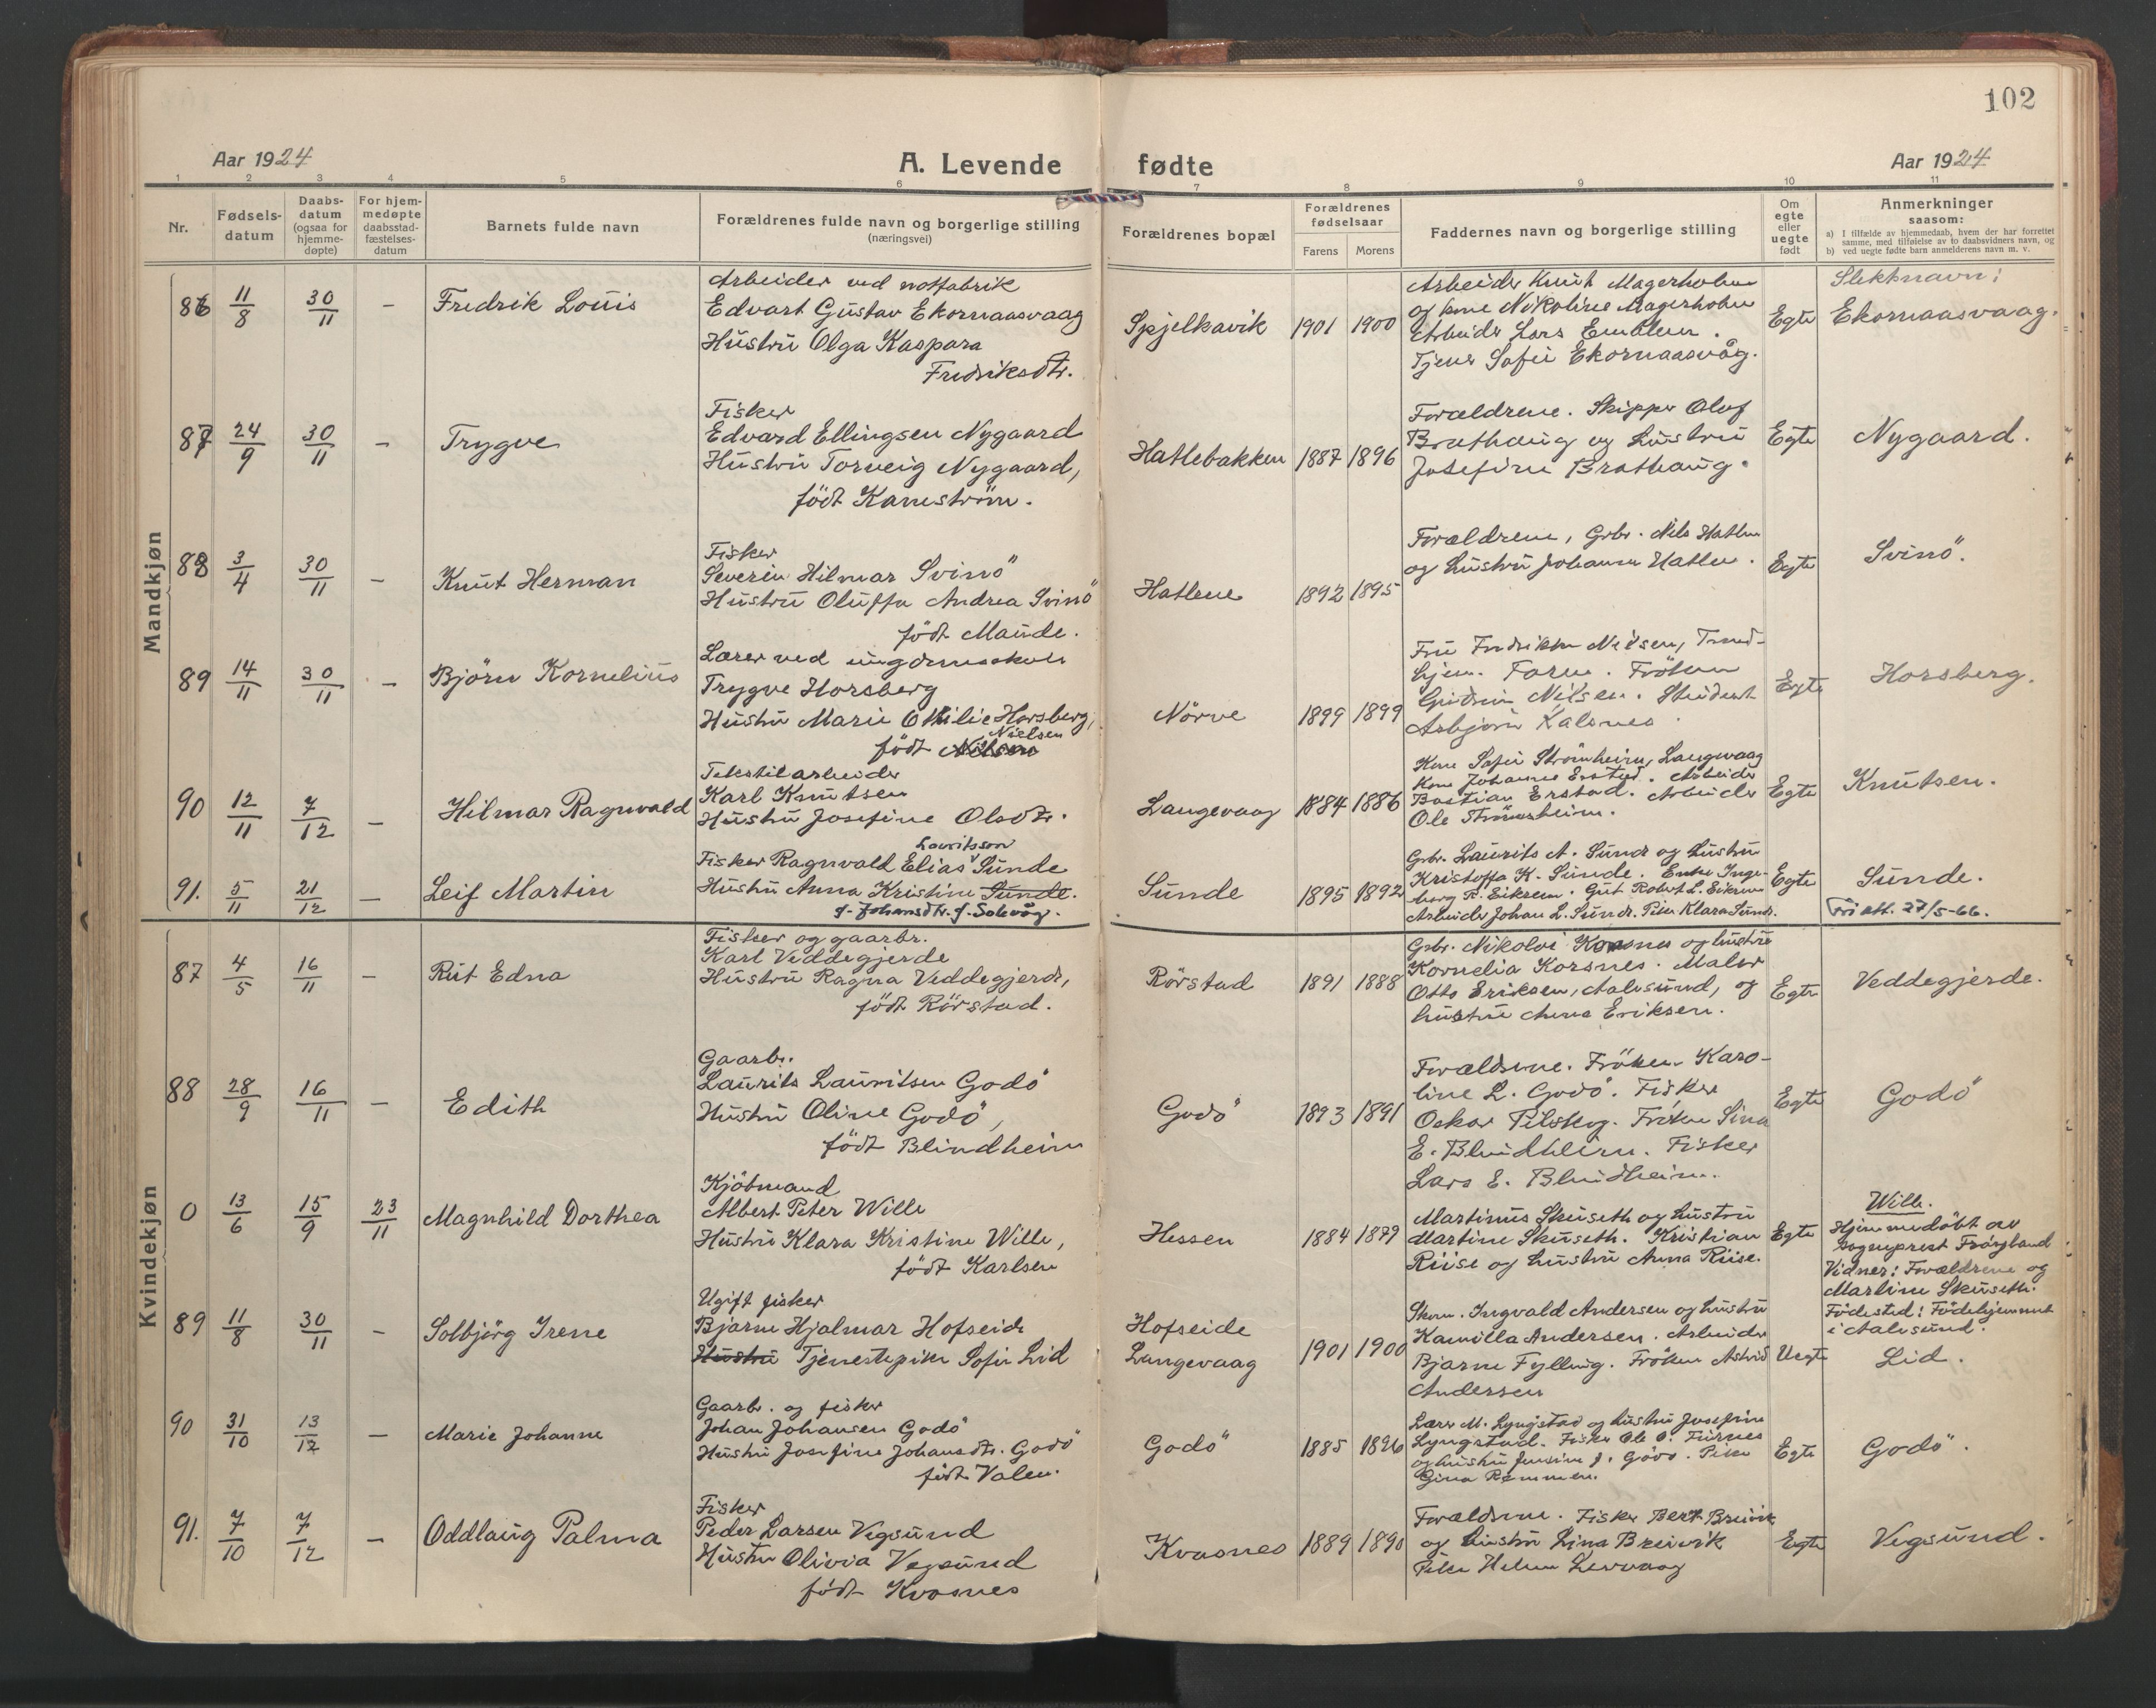 102
Aar 1924
A. Levende fødte
Aar 1924
1 2 3 4 5 6 7 8 9 10 11
Nr.
Fødsels-
datum
Daabs-
datum
(ogsaa for
hjemme-
døpte)
For hjem-
medøpte
daabsstad-
fæstelses-
datum
Barnets fulde navn
Forældrenes fulde navn og borgerlige stilling
(næringsvei)
Forældrenes bopæl
Forældrenes
fødselsaar
Farens Morens
Faddernes navn og borgerlige stilling
Om
egte
eller
uegte
født
Anmerkninger
saasom:
a) I tilfælde av hjemmedaab, hvem der har forrettet
samme, med tilføielse av to daabsvidners navn, og
b) ved uegte fødte barn anmelderens navn m. v.
Mandkjøn
86 11/8 30/11 – Fredrik Louis
Arbeider ved notfabrik
Edvart Gustav Ekornaasvaag
Hustru Olga Kaspara
Fredriksdtr.
Spjelkavik 1901 1900
Arbeider Knut Magerholm
og kone Nikoline Magerholm
Arbeider Lars Emblem.
Tjener Sofie Ekornaasvåg.
Egte
Slektnavn:
Ekornaasvaag.
87 24/9 30/11 – Trygve
Fisker
Edvard Ellingsen Nygaard
Hustru Torveig Nygaard,
født Kamstrøm.
Hatlebakken 1887 1896
Forældrene. Skipper Olaf
Brathaug og hustru
Josefine Brathaug.
Egte Nygaard.
88 3/4 30/11 – Knut Herman
Fisker
Severin Hilmar Svinö
Hustru Oluffa Andrea Svinö
født Maude.
Hatlene 1892 1895
Forældrene, Grbr. Nils Hatlen
og hustru Johanna Hatlen.
Egte Svinö.
89 14/11 30/11 – Björn Kornelius
Lærer ved ungdomsskolen
Trygve Horsberg
Hustru Marie Othilie Horsberg,
Nielsen
født Nilsen
Nörve 1899 1899
Fru Fredrikke Nielsen, Trond-
hjem. Faren. Fröken
Gudrun Nilsen. Student
Asbjørn Kalsnes.
Egte Horsberg.
90 12/11 7/12 – Hilmar Ragnvald
Tekstilarbeider
Karl Knutsen
Hustru Josefine Olsdtr.
Langevaag 1884 1886
Kone Sofie Strömsheim, Langevaag
Kone Johanne Erstad. Arbeider
Bastian Erstad. Arbeider
Ole Strömsheim.
Egte Knutsen.
91. 5/11 21/12 – Leif Martin
Lauritsson
Fisker Ragnvald Elias Sunde
Hustru Anna Kristine Sunde.
f. Johansdtr. f. Solevåg.
Sunde 1895 1892
Grbr. Laurits A. Sunde og hustru
Kristoffa K. Sunde. Enke Inge-
borg P. Eikrem. Gut Robert L. Eikrem
Arbeider Johan L. Sunde. Pike Klara Sunde.
Egte Sunde.
Fri att. 27/5-66.
Kvindekjøn
87 4/5 16/11 – Rut Edna
Fisker og gaarbr.
Karl Veddegjerde
Hustru Ragna Veddegjerde,
født Rörstad.
Rörstad 1891 1888
Grbr. Nikolai Korsnes og hustru
Kornelia Korsnes. Maler
Otto Eriksen, Aalesund, og
hustru Anna Eriksen.
Egte Veddegjerde.
88 28/9 16/11 – Edith
Gaarbr.
Laurits Lauritsen Godö
Hustru Oline Godö,
født Blindheim
Godö 1893 1891
Forældrene. Fröken Karo-
line L. Godö. Fisker
Oskar Pilskog. Fröken Sina
E. Blindheim. Fisker
Lars E. Blindheim.
Egte Godö
0 13/6 15/9 23/11 Magnhild Dorthea
Kjöbmand
Albert Peter Wille
Hustru Klara Kristine Wille,
født Karlsen
Hessen 1884 1879
Martinus Skuseth og hustru
Martine Skuseth. Kristian
Riise og hustru Anna Riise.
Egte
Wille.
Hjemmedöbt av
sogneprest Fröysland
Vidner: Forældrene og
Martine Skuseth.
Födested: Födehjemmet
i Aalesund.
89 11/8 30/11 – Solbjörg Irene
Ugift fisker
Bjarne Hjalmar Hofseide
Hustru Tjenestepike Sofie Lid
Hofseide
Langevaag
1901 1900
Skom. Ingvald Andersen og hustru
Kamilla Andersen. Arbeider
Bjarne Fylling. Fröken Astrid
Andersen
Uegte Lid.
90 31/10 13/12 – Marie Johanne
Gaarbr. og fisker
Johan Johansen Godö
Hustru Josefine Johansdtr. Godö
født Valen.
Godö 1885 1896
Lærer M. Lyngstad og hustru Josefine
Lyngstad. Fisker Ole O. Furnes
og hustru Jensine J. Godö. Pike
Gina Rømmen.
Egte Godö.
91. 7/10 7/12 – Oddlaug Palma
Fisker
Peder Larsen Vegsund
Hustru Olivia Vegsund
født Kvasnes
Kvasnes 1889 1890
Forældrene. Fisker Bert Breivik
og hustru Lina Breivik
Pike Helene Lervaag
Egte Vegsund.